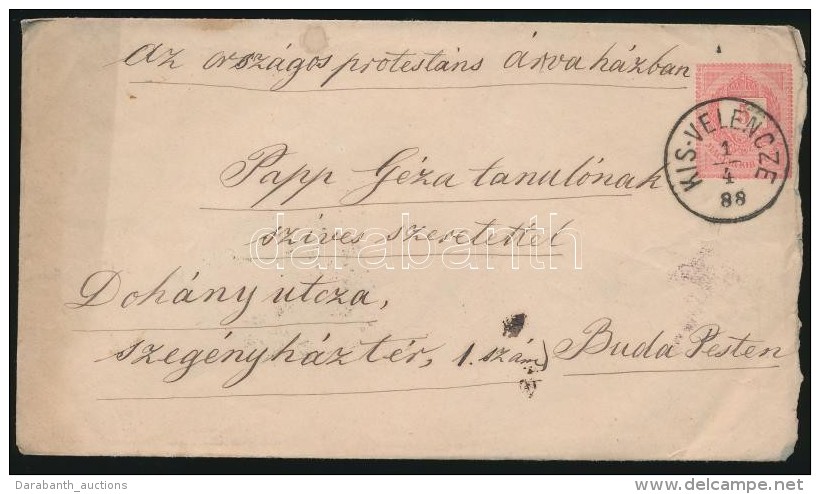 Az országos protestáns árvaházban
5
KIS-VELENCZE
1
4
88
Papp Géza tanulónak
szives szeretettel
darabanth
Dohány utcza,
szegényháztér, 1. szám) Buda Pesten
Darabanth_auctions
delcampe.net